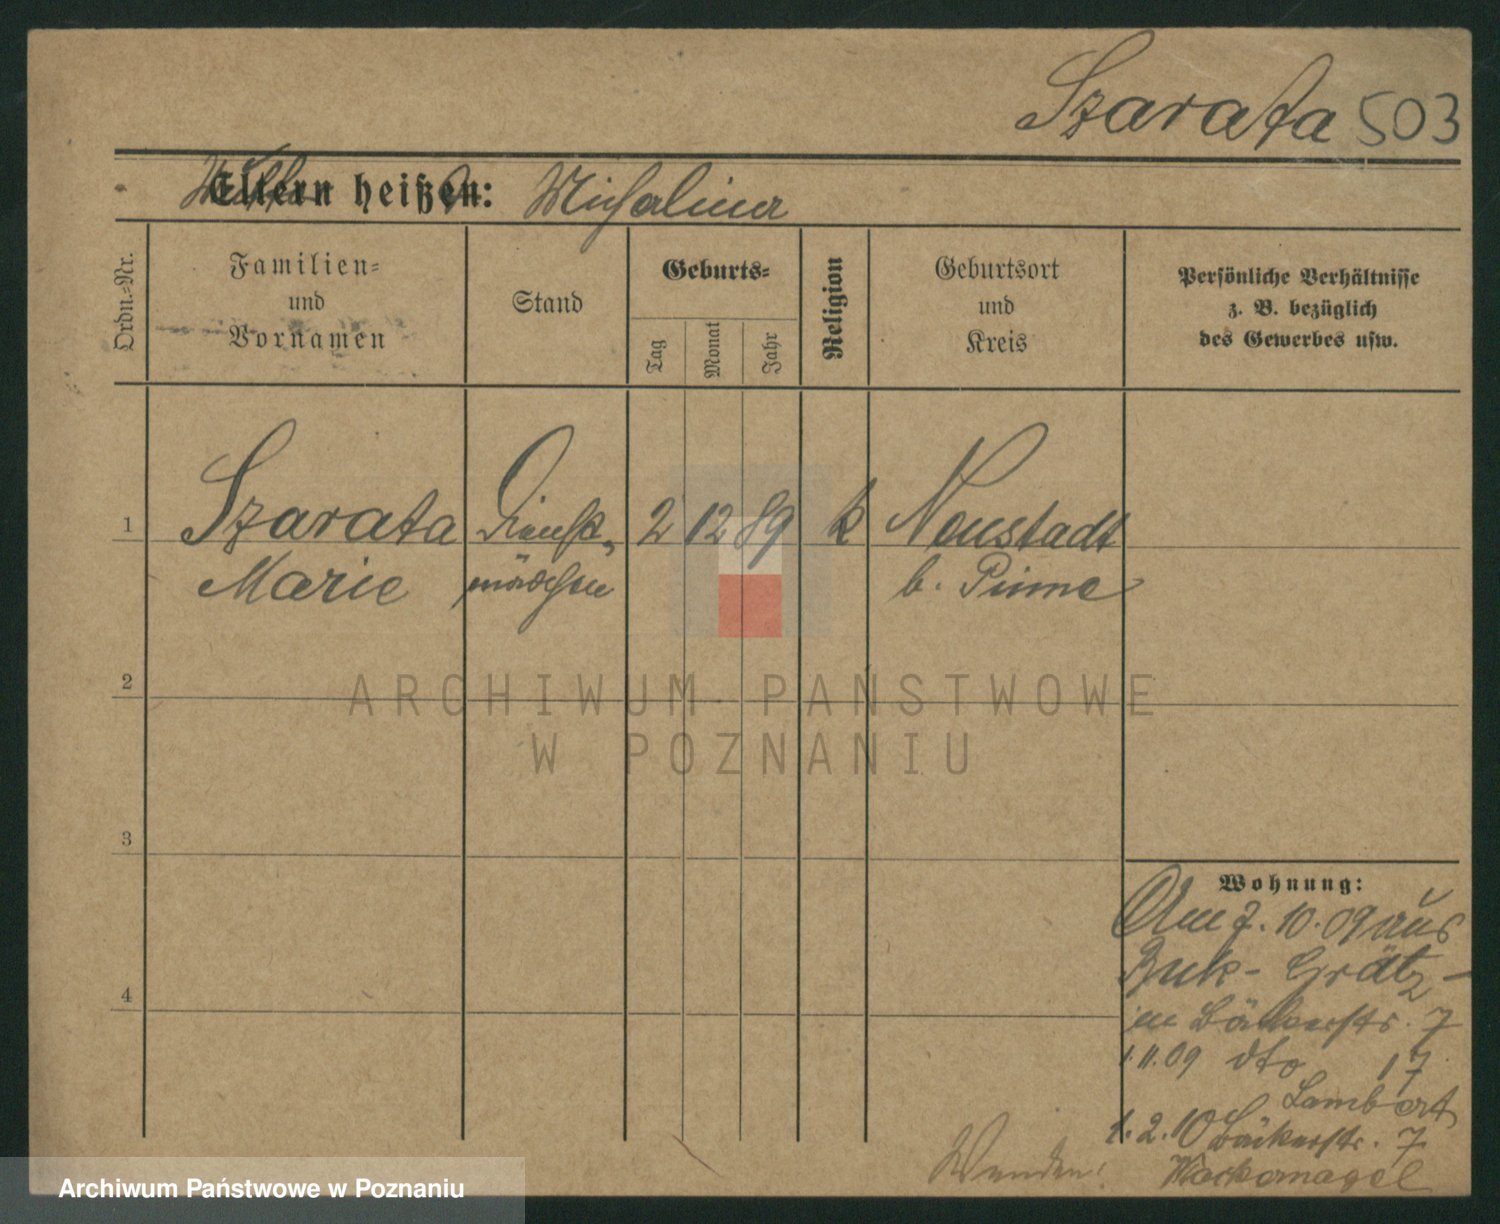 Szarata 503
Eltern heißen: Michalina
Ordn.-Nr.
Familien-
und
Vornamen
Stand
Geburts-
Tag
Monat
Jahr
Religion
Geburtsort
und
Kreis
Persönliche Verhältnisse
z. B. bezüglich
des Gewerbes usw.
1 Szarata Dienst- 2 12 89 k Neustadt
Marie mädchen b. Pinne
2
3
4
Wohnung:
Am 7. 10. 09 aus
Buk - Grätz -
in Bäckerstr. 7
1.11.09 dto 17
Lambert
1. 2. 10 Bäckerstr. 7
Wackernagel
Wenden!
ARCHIWUM PAŃSTWOWE
W POZNANIU
Archiwum Państwowe w Poznaniu